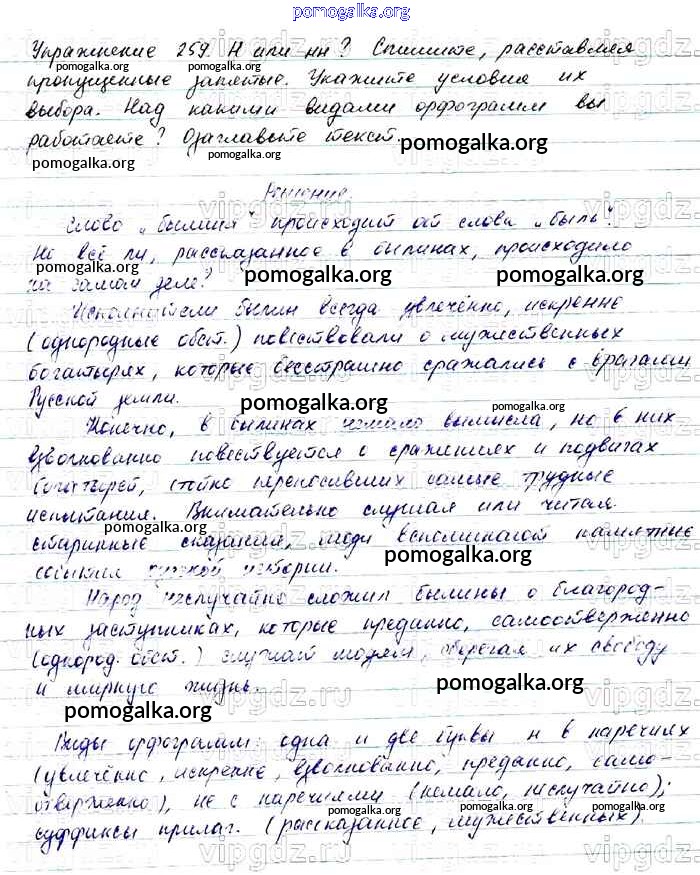 pomogalka.org
Упражнение 259. Н или нн? Спишите, расставляя
пропущенные запятые. Укажите условия их
выбора. Над какими видами орфограмм вы
работаете? Озаглавьте текст.
Решение.
Слово „былина" происходит от слова „быль".
Но всё ли, рассказанное в былинах, происходило
на самом деле?
Исполнители былин всегда увлечённо, искренне
(однородные обст.) повествовали о мужественных
богатырях, которые бесстрашно сражались с врагами
Русской земли.
Конечно, в былинах немало вымысла, но в них
взволнованно повествуется о сражениях и подвигах
богатырей, стойко переносивших самые трудные
испытания. Внимательно слушая или читая
старинные сказания, люди вспоминают памятные
события русской истории.
Народ неслучайно сложил былины о благород-
ных заступниках, которые преданно, самоотверженно
(однород. обст.) служат людям, оберегая их свободу
и мирную жизнь.
Виды орфограмм: одна и две буквы н в наречиях
(увлечённо, искренне, взволнованно, преданно, само-
отверженно), не с наречиями (немало, неслучайно);
суффиксы прилаг. (рассказанное, мужественных)